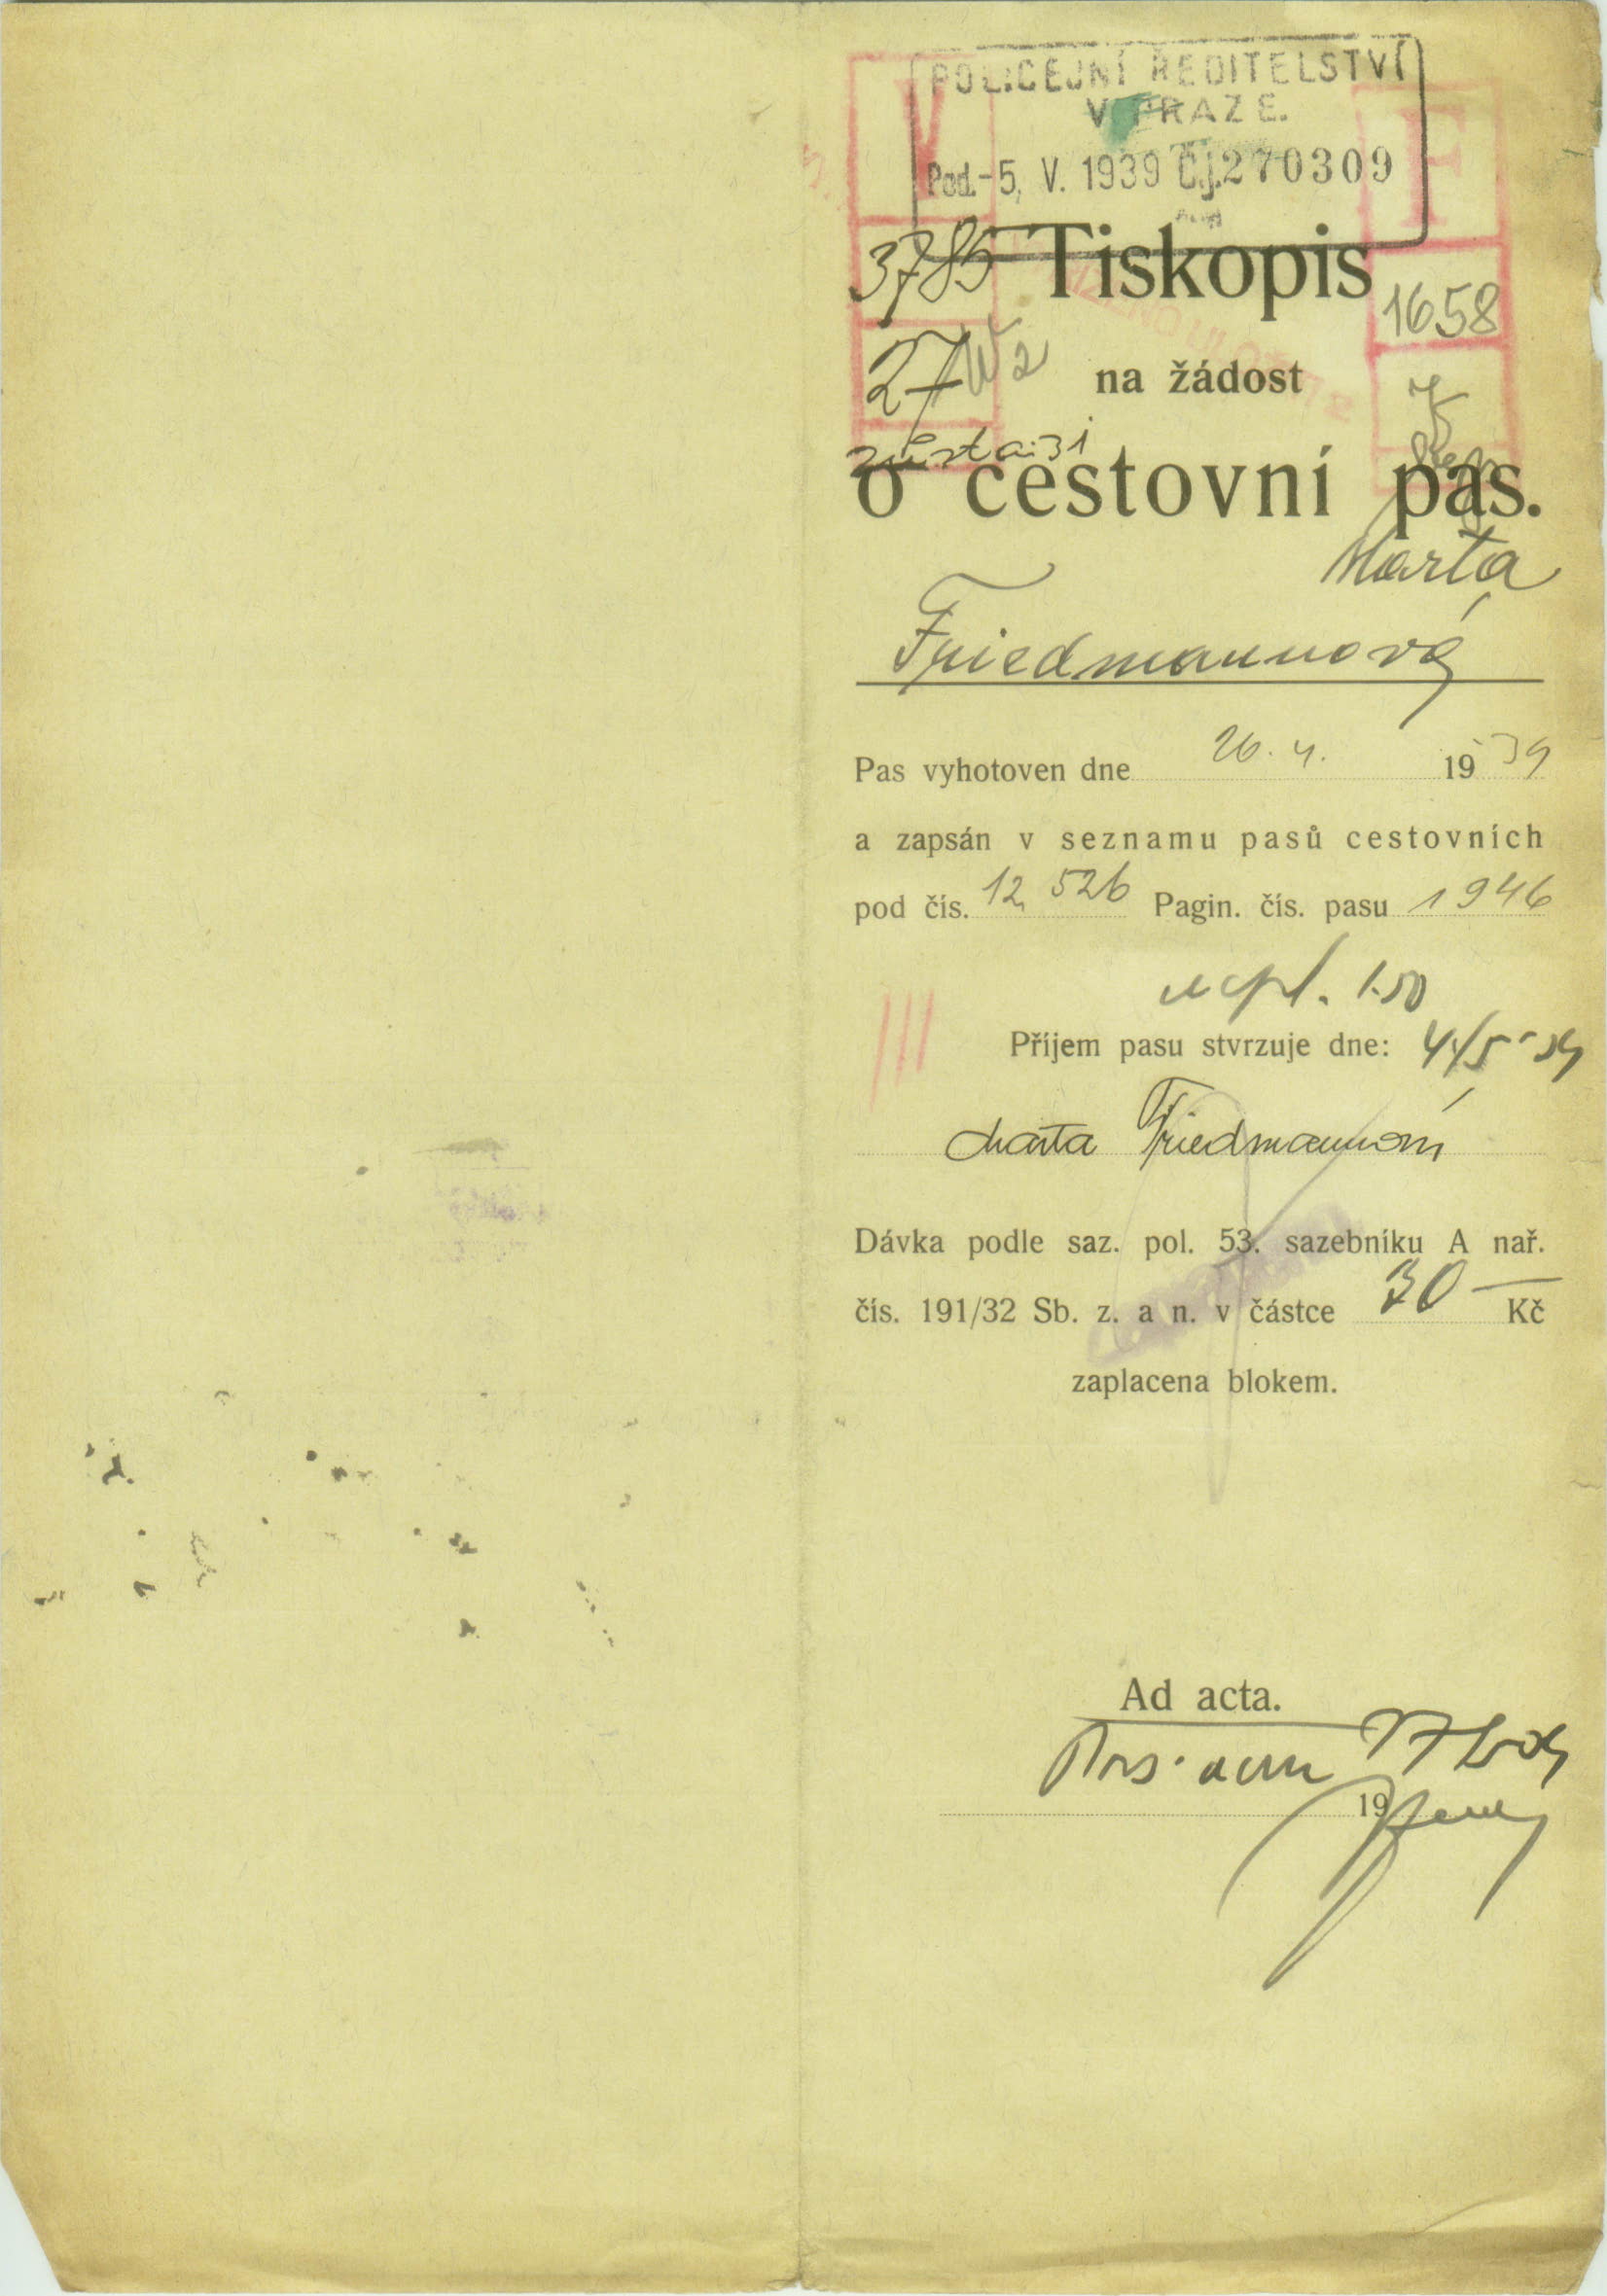 POLICEJNÍ ŘEDITELSTVÍ
V PRAZE.
Pod. -5. V. 1939 Č.j. 270309
V
F
3785
Tiskopis
1658
27
na žádost
o cestovní pas.
Marta
Friedmannová
Pas vyhotoven dne 26. 4. 1939
a zapsán v seznamu pasů cestovních
pod čís. 12 526 Pagin. čís. pasu 1946
1.50
Příjem pasu stvrzuje dne: 4/5 39
Marta Friedmannová
Dávka podle saz. pol. 53. sazebníku A nař.
čís. 191/32 Sb. z. a n. v částce 30 — Kč
zaplacena blokem.
Ad acta.
19